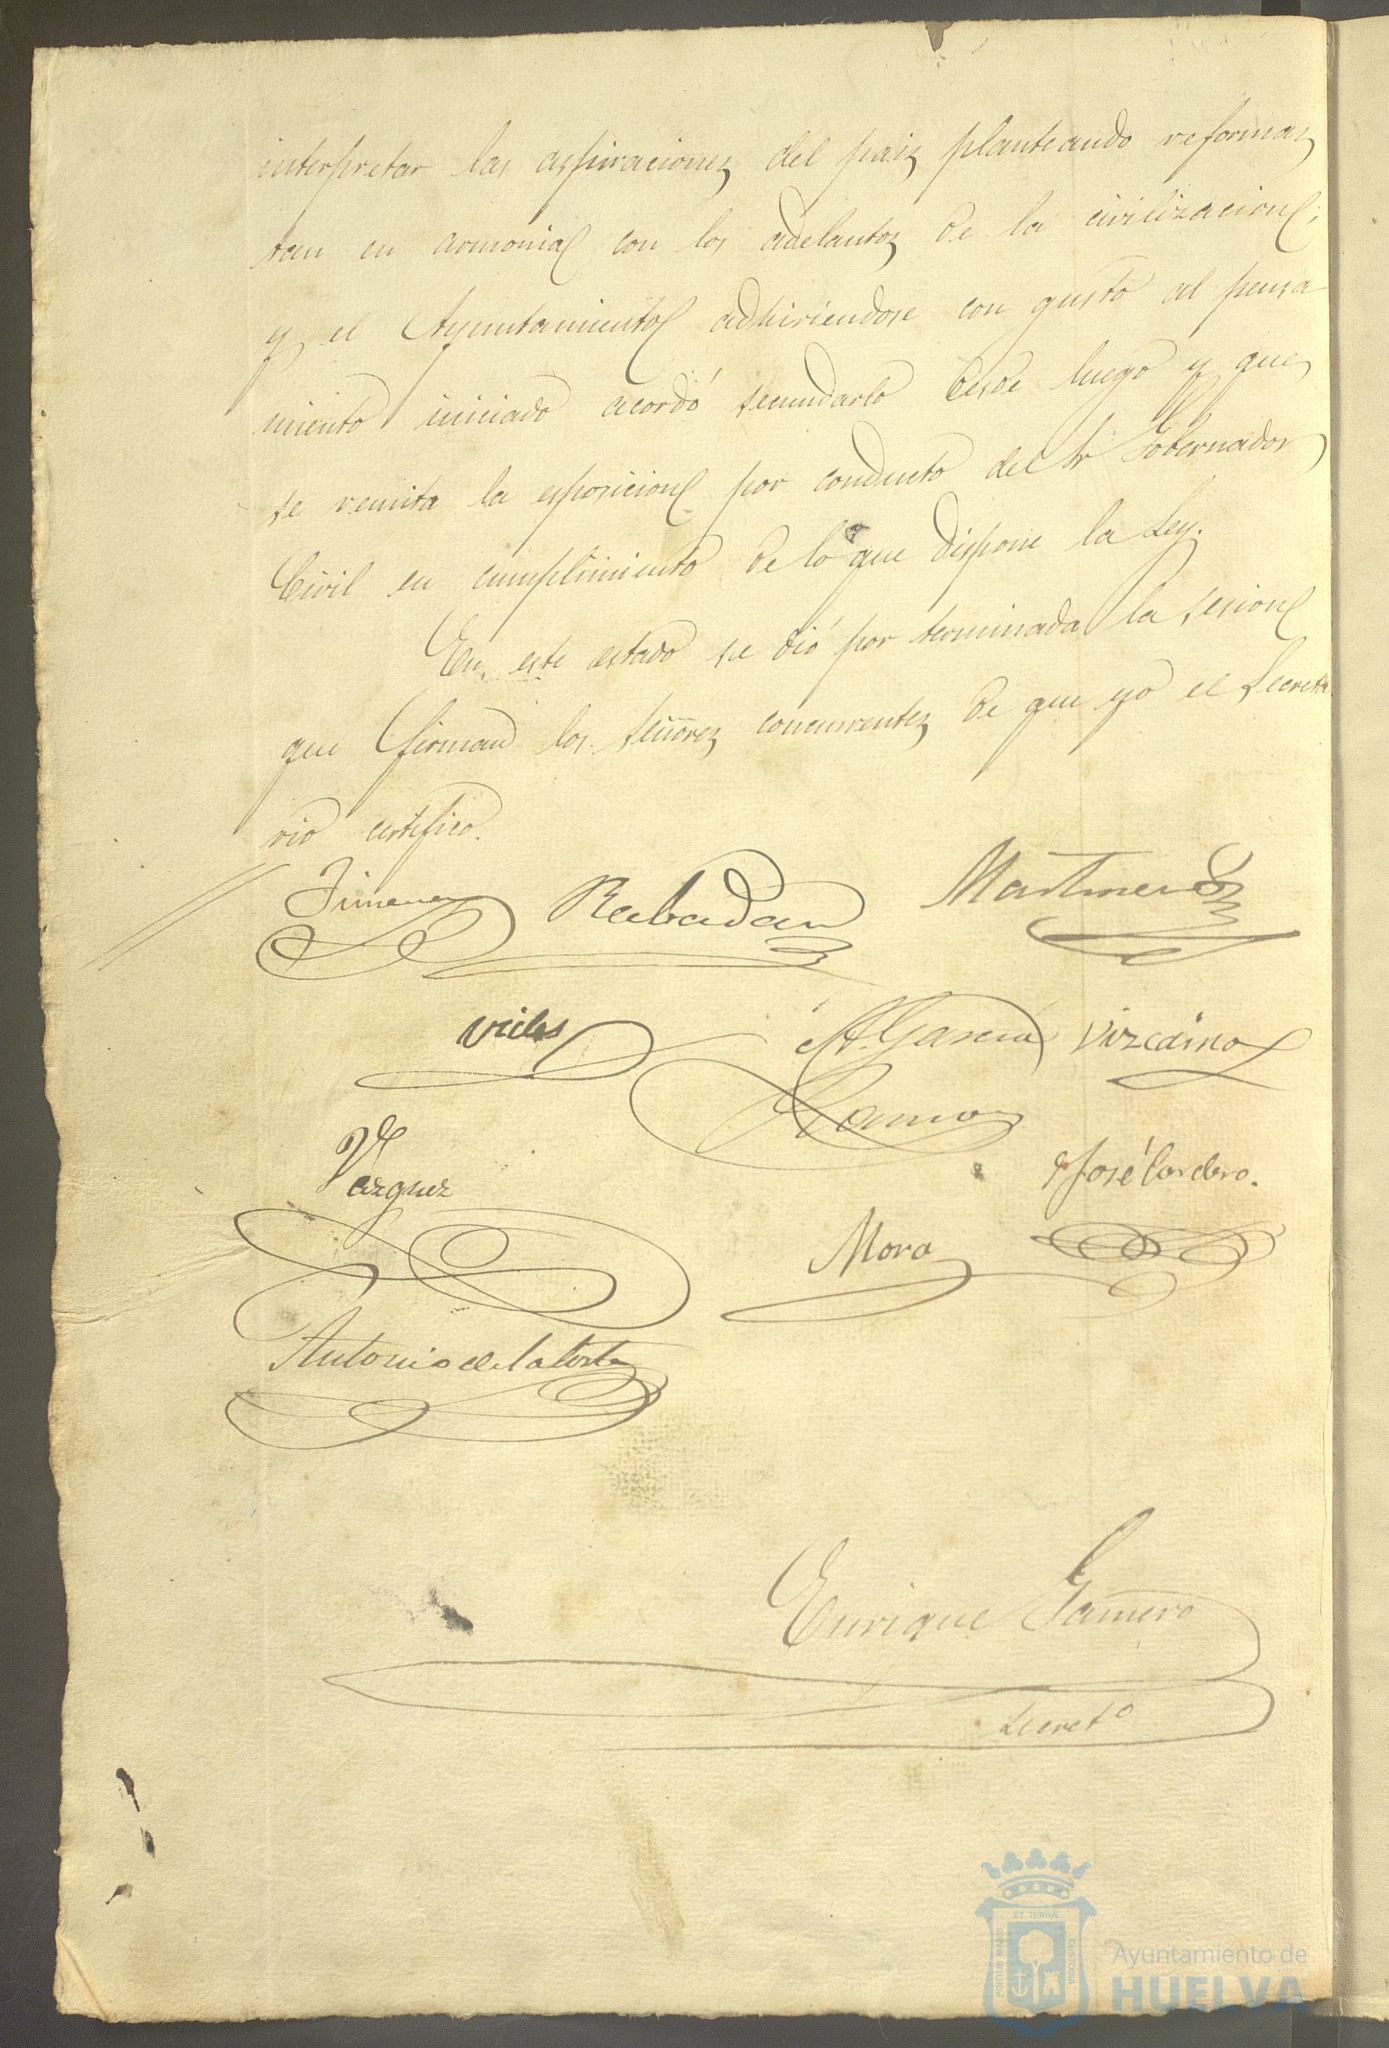 interpretar las aspiraciones del pais planteando reformas
tan en armonia con los adelantos de la civilizacion;
y el Ayuntamiento adhiriendose con gusto al pensa
miento iniciado acordó secundarlo desde luego y que
se remita la esposicion por conducto del Sr Gobernador
Civil en cumplimiento de lo que dispone la Ley.
En este estado se dió por terminada la sesion
que firman los Señores concurrentes de que yo el Secreta
rio certifico.
Jimenez Rabadan Martinez
A. Garcia Vizcaino
Ramos
Vazquez
José Cordero.
Mora
Antonio de la Corte
Enrique Gamero
Secretº
PORTUS MARIS ET TERRAE CUSTODIA
Ayuntamiento de
HUELVA